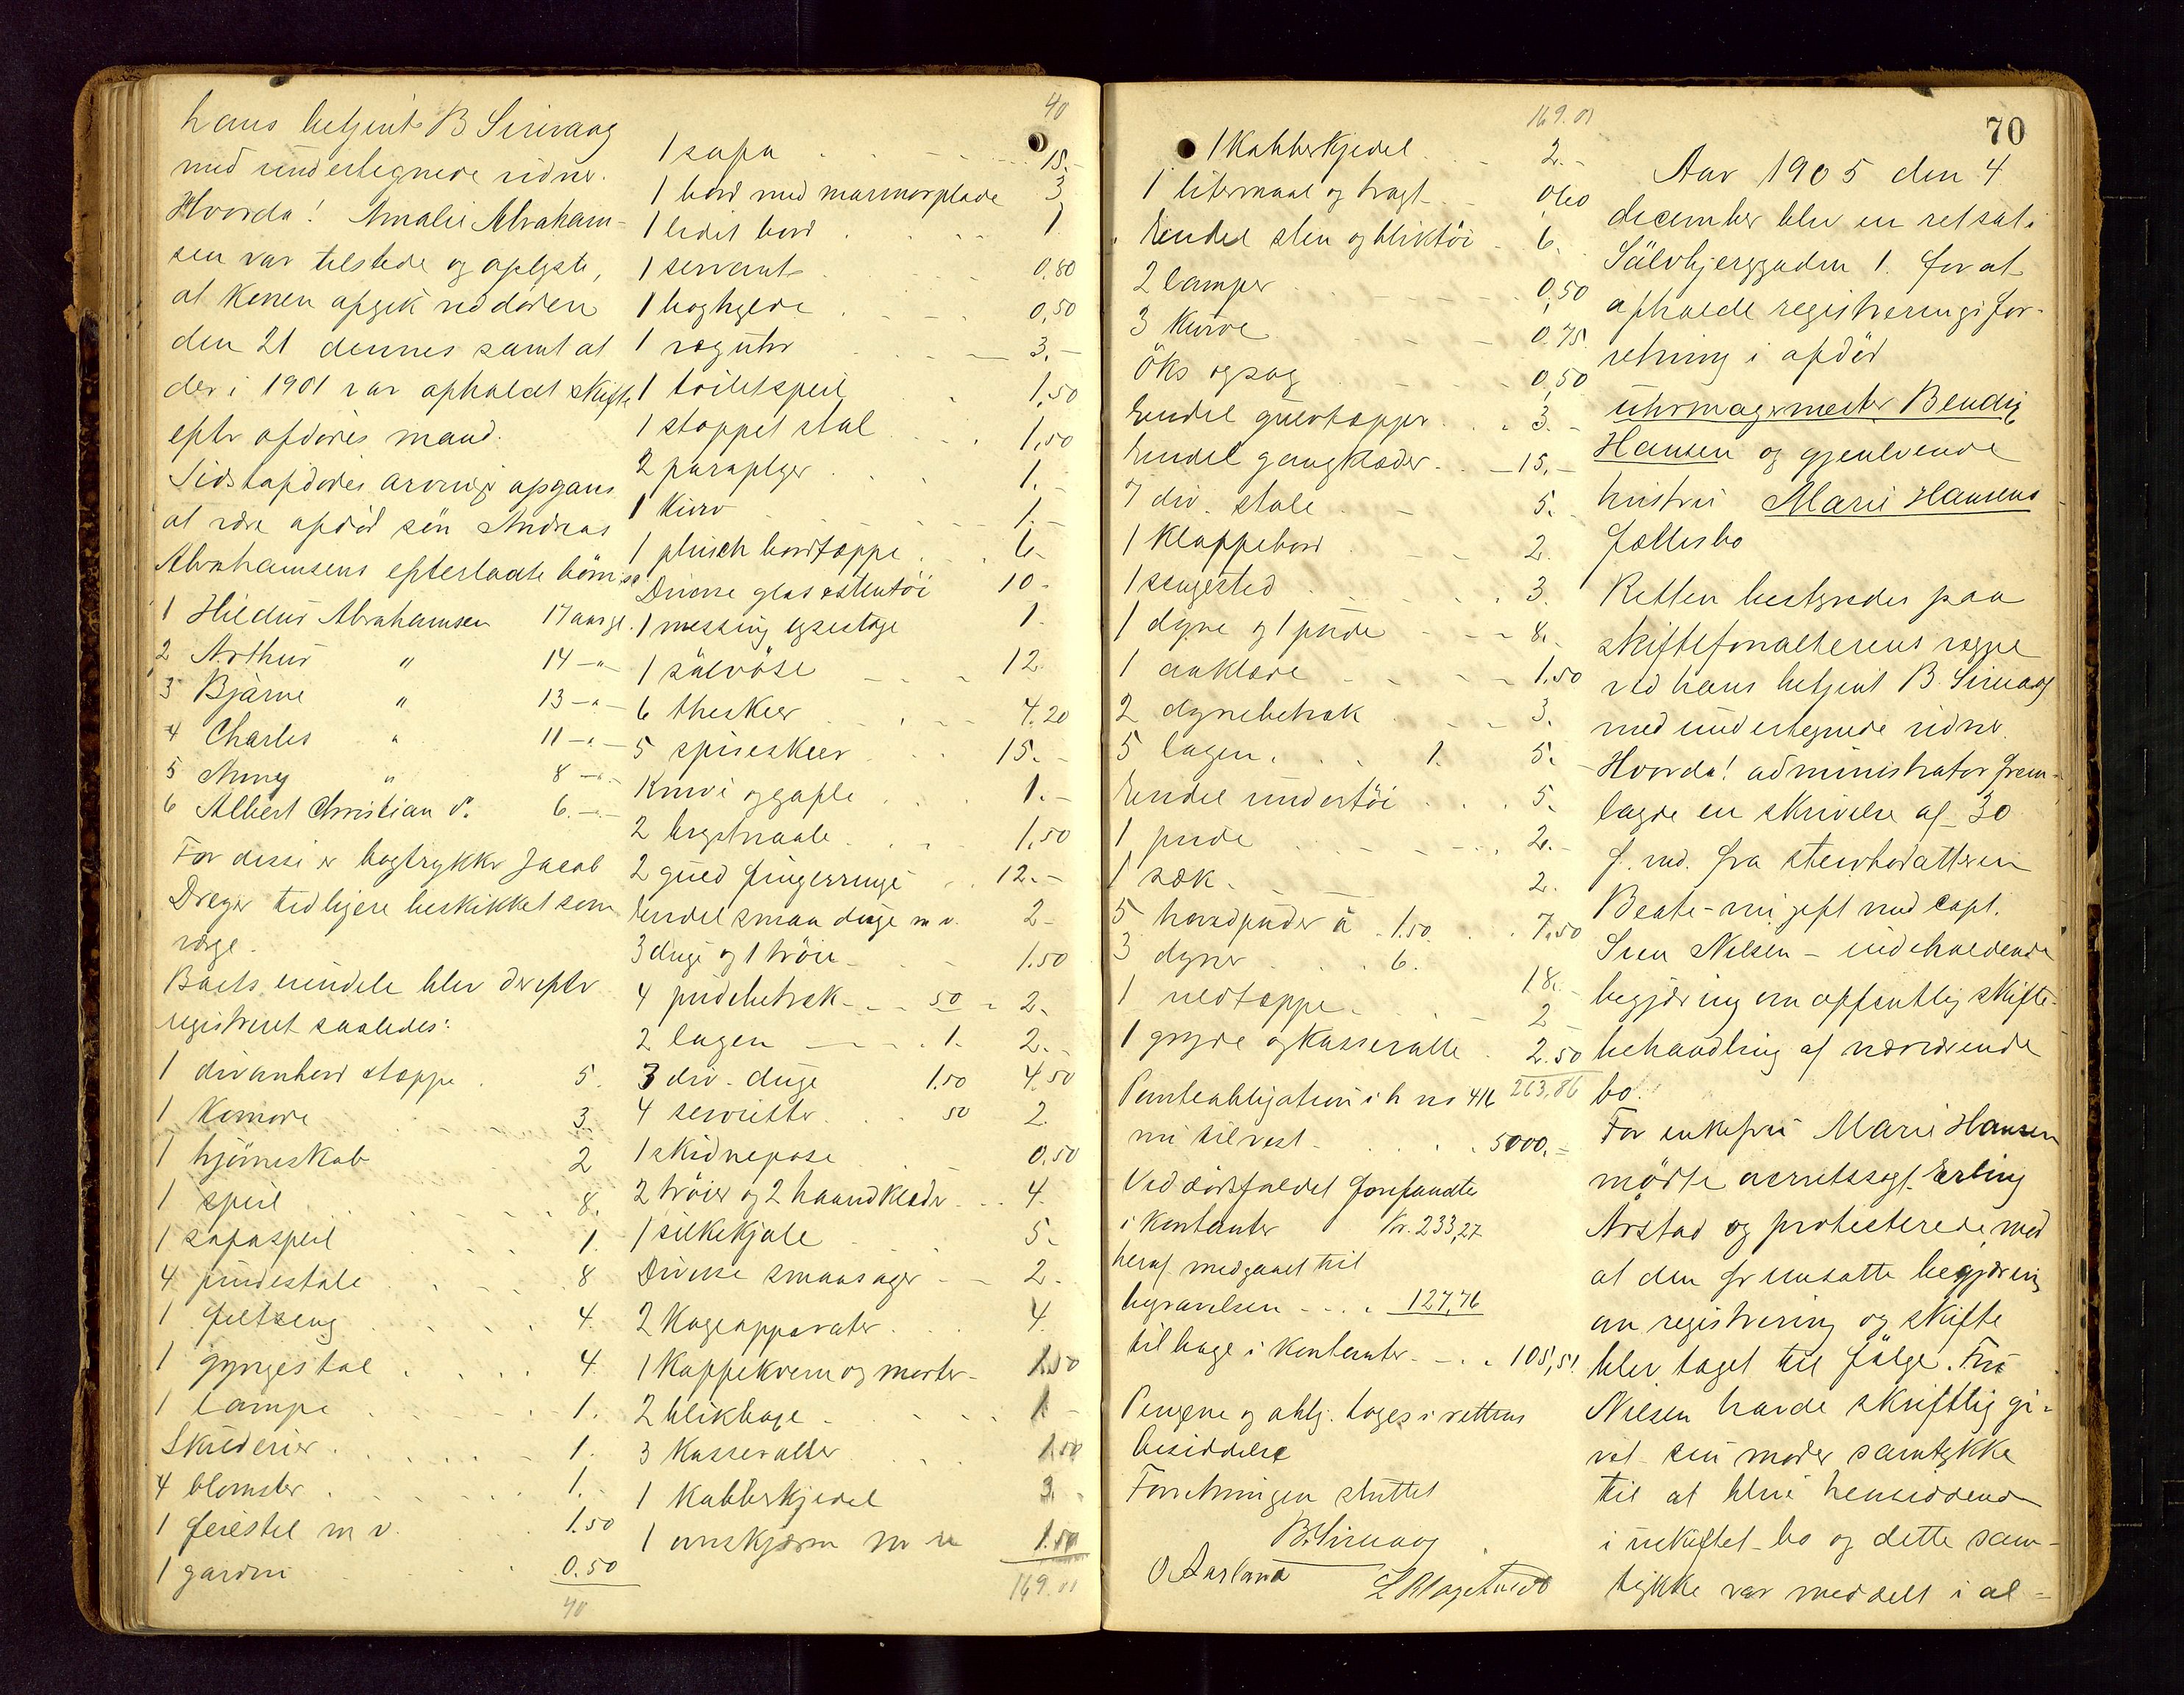 hans betjent B Sirevaag
med undertegnede vidner.
Hvorda! Amalie Abraham-
sen var tilstede og oplyste,
at konen afgik ved døden
den 21 dennes samt at
der i 1901 var afholdt skifte
efter afdødes mand.
Sidstafdødes arvinger opgaves
at være afdød søn Andreas
Abrahamsens efterladte børn:
1 Hildur Abrahamsen 17 aar gl.
2 Arthur " 14 -"-
3 Bjarne " 13 -"-
4 Charles " 11 -"-
5 Anny " 8 -"-
6 Albert Christian d. 6. -"-
For disse er bogtrykker Jacob
Dreyer tidligere beskikket som
værge.
Boets eiendele blev derefter
registreret saaledes:
1 divanbord & tæppe . 5.
1 Komode 3.
1 hjørneskab 2
1 speil 8.
1 sofaspeil 1.
4 pindestole 8
1 feltseng 4.
1 gyngestol 4.
1 lampe 1.
Skilderier 1.
4 blomster 1.
1 feiestel m v. 1.50
1 gardin 0.50
40
40
1 sofa 15.-
1 bord med marmorplade 3
1 lidit bord 1
1 servant 0.80
1 boghylde 0,50
1 væguhr 3.-
1 toiletspeil 1,50
1 stoppet stol 1,50
2 paraplyer 1.-
1 Kurv 1.-
1 plusch bordtæppe 6.-
Diverse glas & stentøi 10-
1 messing lysestage 1.
1 sølvøse 12.
6 theskeer 4.20
5 spiseskeer 15.-
Knive og gafle 1.-
2 brystnaale 1,50
2 guld fingerringe 12.-
Endel smaa duge m v. 2-
3 duge og 1 trøie 1.50
4 pudebetræk 50 2.-
2 lagen 1. 2.-
3 div. duge 1.50 4.50
4 servietter 50 2.
1 skidnepose 0.50
2 trøier og 2 haandklæder 4.
1 silkekjole 5.
Diverse smaasager 2.
2 Kogeapparater 4.
1 Kaffekvern og morter 1.50
2 blikbage 1.-
3 Kasseroller 1.50
1 Kobberkjedel 3.
1 ovnskjærm m v 1.50
169.01
169.01
1 Kobberkjedel 2.-
1 litermaal og tragt 0.60
Endel sten og bliktøi 6.
2 lamper 0,50
3 Kurve 0.75
øks og sag 0,50
Endel gulvtæpper 3.-
Endel gangklæder 15.-
7 div. stole 5.
1 Klappebord 2.
1 sengested 3.
1 dyne og 1 pude 8.
1 aaklæde 1.50
2 dynebetræk 3.
5 lagen 1. 5.
Endel undertøi 5.
1 pude 2.-
1 sæk 2.
5 hovedpuder à 1.50 7,50
3 dyner 6. 18.
1 uldtæppe 2
1 gryde og Kasserolle 2.50
263,86
Panteobligation i h no 416
ni til rest 5000.=
Ved dødsfaldet forefandtes
i kontanter Kr. 233,27
heraf medgaaet til
begravelsen 127,76
tilbage i kontanter 105,51
Pengene og oblg. toges i rettens
besiddelse
Forretningen sluttet
B. Sirevaag
O. Aasland
70
Aar 1905 den 4
december blev en ret sat i
Sølvbjerggaden 1. for at
afholde registreringsfor-
retning i afdød
uhrmagermester Bendix
Hansen og gjenlevende
hustru Marie Hansens
fællesbo
Retten bestyredes paa
skifteforvalterens vegne
ved hans betjent B. Sirevaag
med undertegnede vidner.
Hvorda! administrator frem-
lagde en skrivelse af 30
f. md. fra steddatteren
Beate-ni gift med capt.
Sven Nilsen - indeholdende
begjæring om offentlig skifte-
behandling af nærværende
bo.
For enkefru Marie Hansen
mødte overretssagf. Erling
Arstad og protesterede mod
at den fremsatte begjæring
om registrering og skifte
blev taget til følge. Fru
Nielsen havde skriftlig gi-
vet sin moder samtykke
til at blive hensiddende
i uskiftet bo og dette sam-
tykke var meddelt i al-